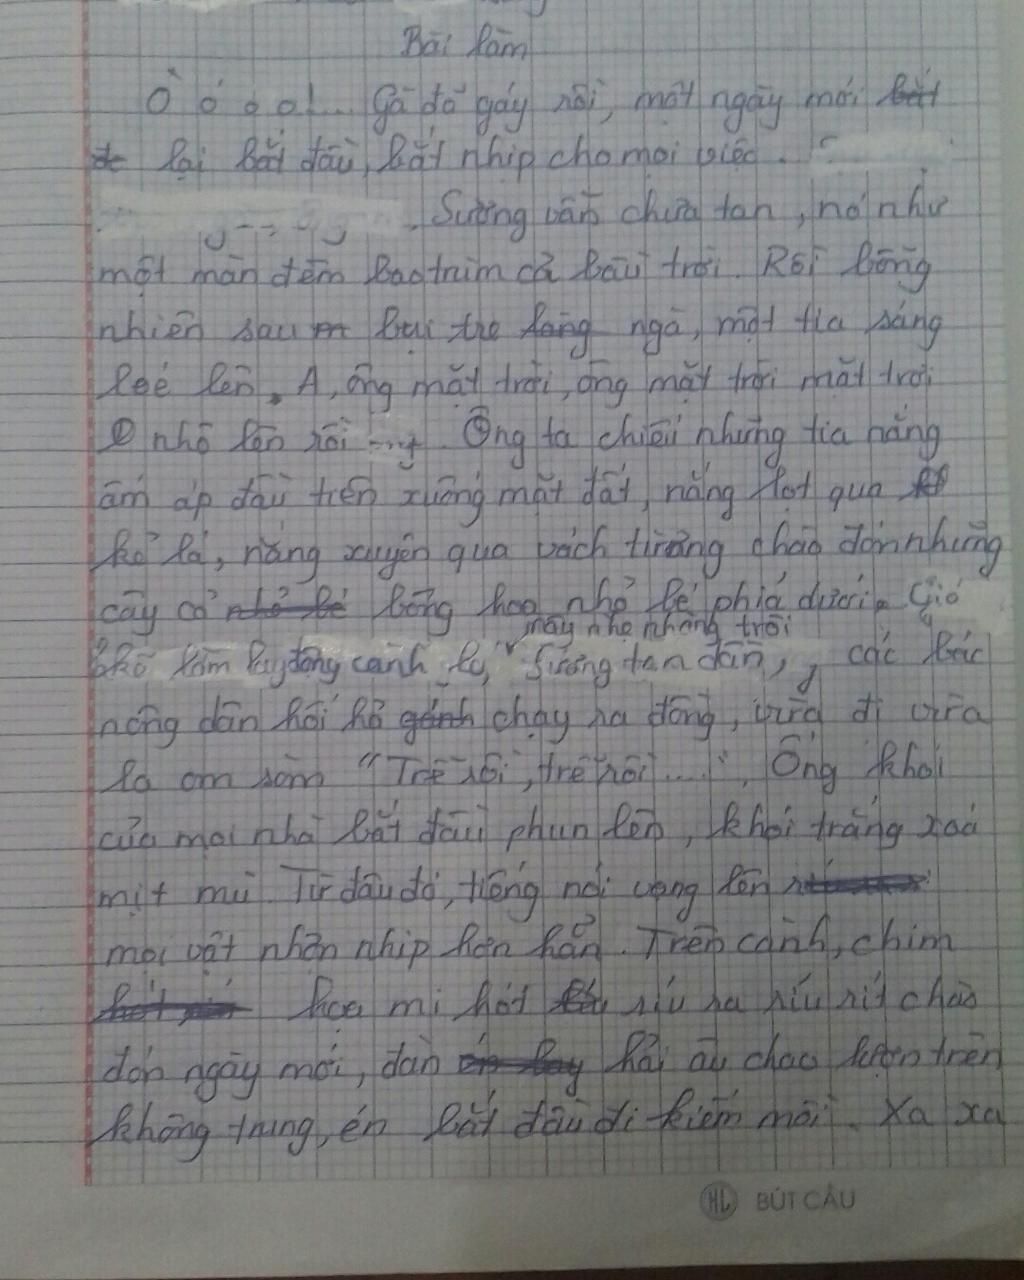 Bài làm
Ò ó o o!... Gà đã gáy rồi, một ngày mới bắt
lại bắt đầu, bắt nhịp cho mọi việc.
Sương vẫn chưa tan, nó như
một màn đêm bao trùm cả bầu trời. Rồi bỗng
nhiên sau bụi tre làng ngà, một tia sáng
loé lên. A, ông mặt trời, ông mặt trời mặt trời
nhô lên rồi. Ông ta chiếu những tia nắng
ấm áp đầu tiên xuống mặt đất, nắng lọt qua
kẽ lá, nắng xuyên qua vách tường chào đón những
cây cỏ nhỏ bé bông hoa nhỏ bé phía dưới. Gió
mây nhẹ nhàng trôi
khẽ làm lay động cành cây, Sương tan dần, các bác
nông dân hối hả gánh chạy ra đồng, vừa đi vừa
la om sòm "Trễ rồi, trễ rồi....". Ống khói
của mọi nhà bắt đầu phun lên, khói trắng xoá
mịt mù. Từ đâu đó, tiếng nói vang lên
mọi vật nhộn nhịp hơn hẳn. Trên cành, chim
hoạ mi hót ríu ra ríu rít chào
đón ngày mới, đàn hải âu chao lượn trên
không trung, én bắt đầu đi kiếm mồi. Xa xa
HL BÚT CÂU